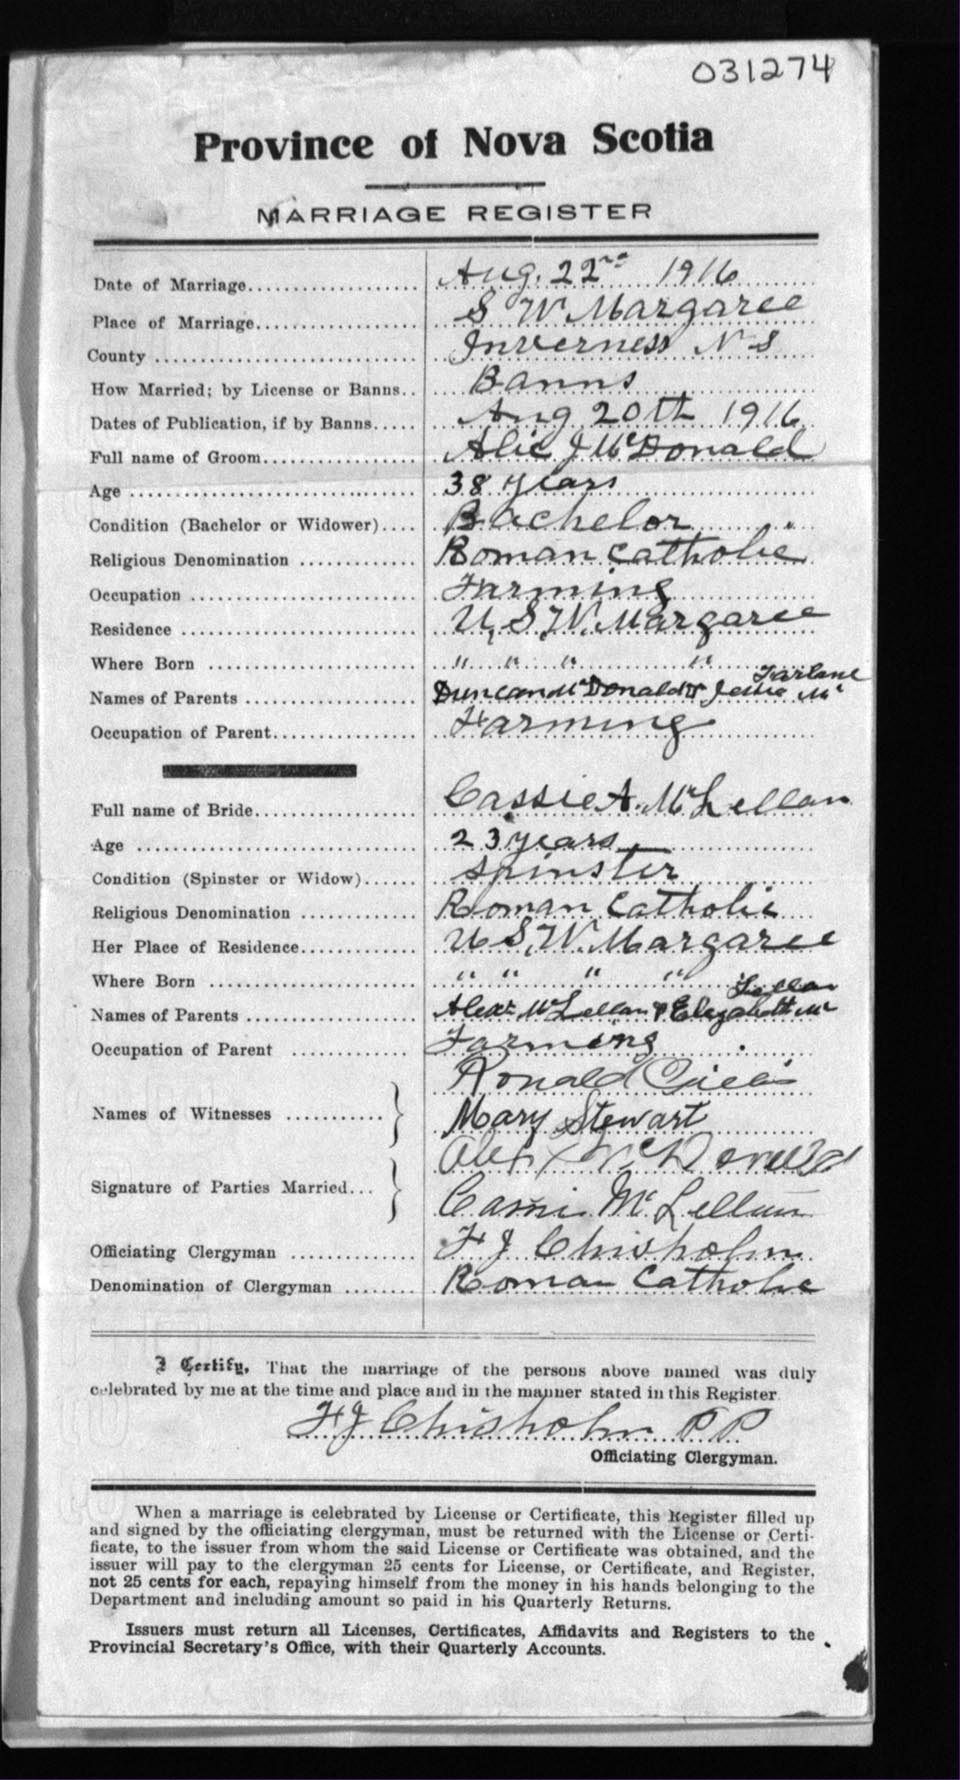 031274
Province of Nova Scotia
MARRIAGE REGISTER
Date of Marriage.................. Aug. 22nd 1916
Place of Marriage................. S W Margaree
County .................. Inverness N S
How Married; by License or Banns.. Banns
Dates of Publication, if by Banns..... Aug 20th 1916
Full name of Groom................ Alic J McDonald
Age .................. 38 years
Condition (Bachelor or Widower).... Bachelor
Religious Denomination ............. Roman Catholic
Occupation .................. Farming
Residence .................. U, S, W. Margaree
Where Born .................. " " " "
Farlane
Names of Parents .................. Duncan McDonald & Jessie Mc
Occupation of Parent.................. Farming
Full name of Bride.................. Cassie A. McLellan
Age .................. 23 years
Condition (Spinster or Widow)...... spinster
Religious Denomination ............. Roman Catholic
Her Place of Residence............. U S, W. Margaree
Where Born .................. " " " "
Lellan
Names of Parents .................. Alexr McLellan & Elizabeth Mc
Occupation of Parent ............. Farming
Ronald Gillis
Names of Witnesses ........... } Mary Stewart
Alex McDonald
Signature of Parties Married... }
Cassie McLellan
Officiating Clergyman ............. F J Chisholm
Denomination of Clergyman ........ Roman Catholic
I Certify, That the marriage of the persons above named was duly
celebrated by me at the time and place and in the manner stated in this Register.
F J Chisholm P P
Officiating Clergyman.
When a marriage is celebrated by License or Certificate, this Register filled up
and signed by the officiating clergyman, must be returned with the License or Certi-
ficate, to the issuer from whom the said License or Certificate was obtained, and the
issuer will pay to the clergyman 25 cents for License, or Certificate, and Register,
not 25 cents for each, repaying himself from the money in his hands belonging to the
Department and including amount so paid in his Quarterly Returns.
Issuers must return all Licenses, Certificates, Affidavits and Registers to the
Provincial Secretary's Office, with their Quarterly Accounts.